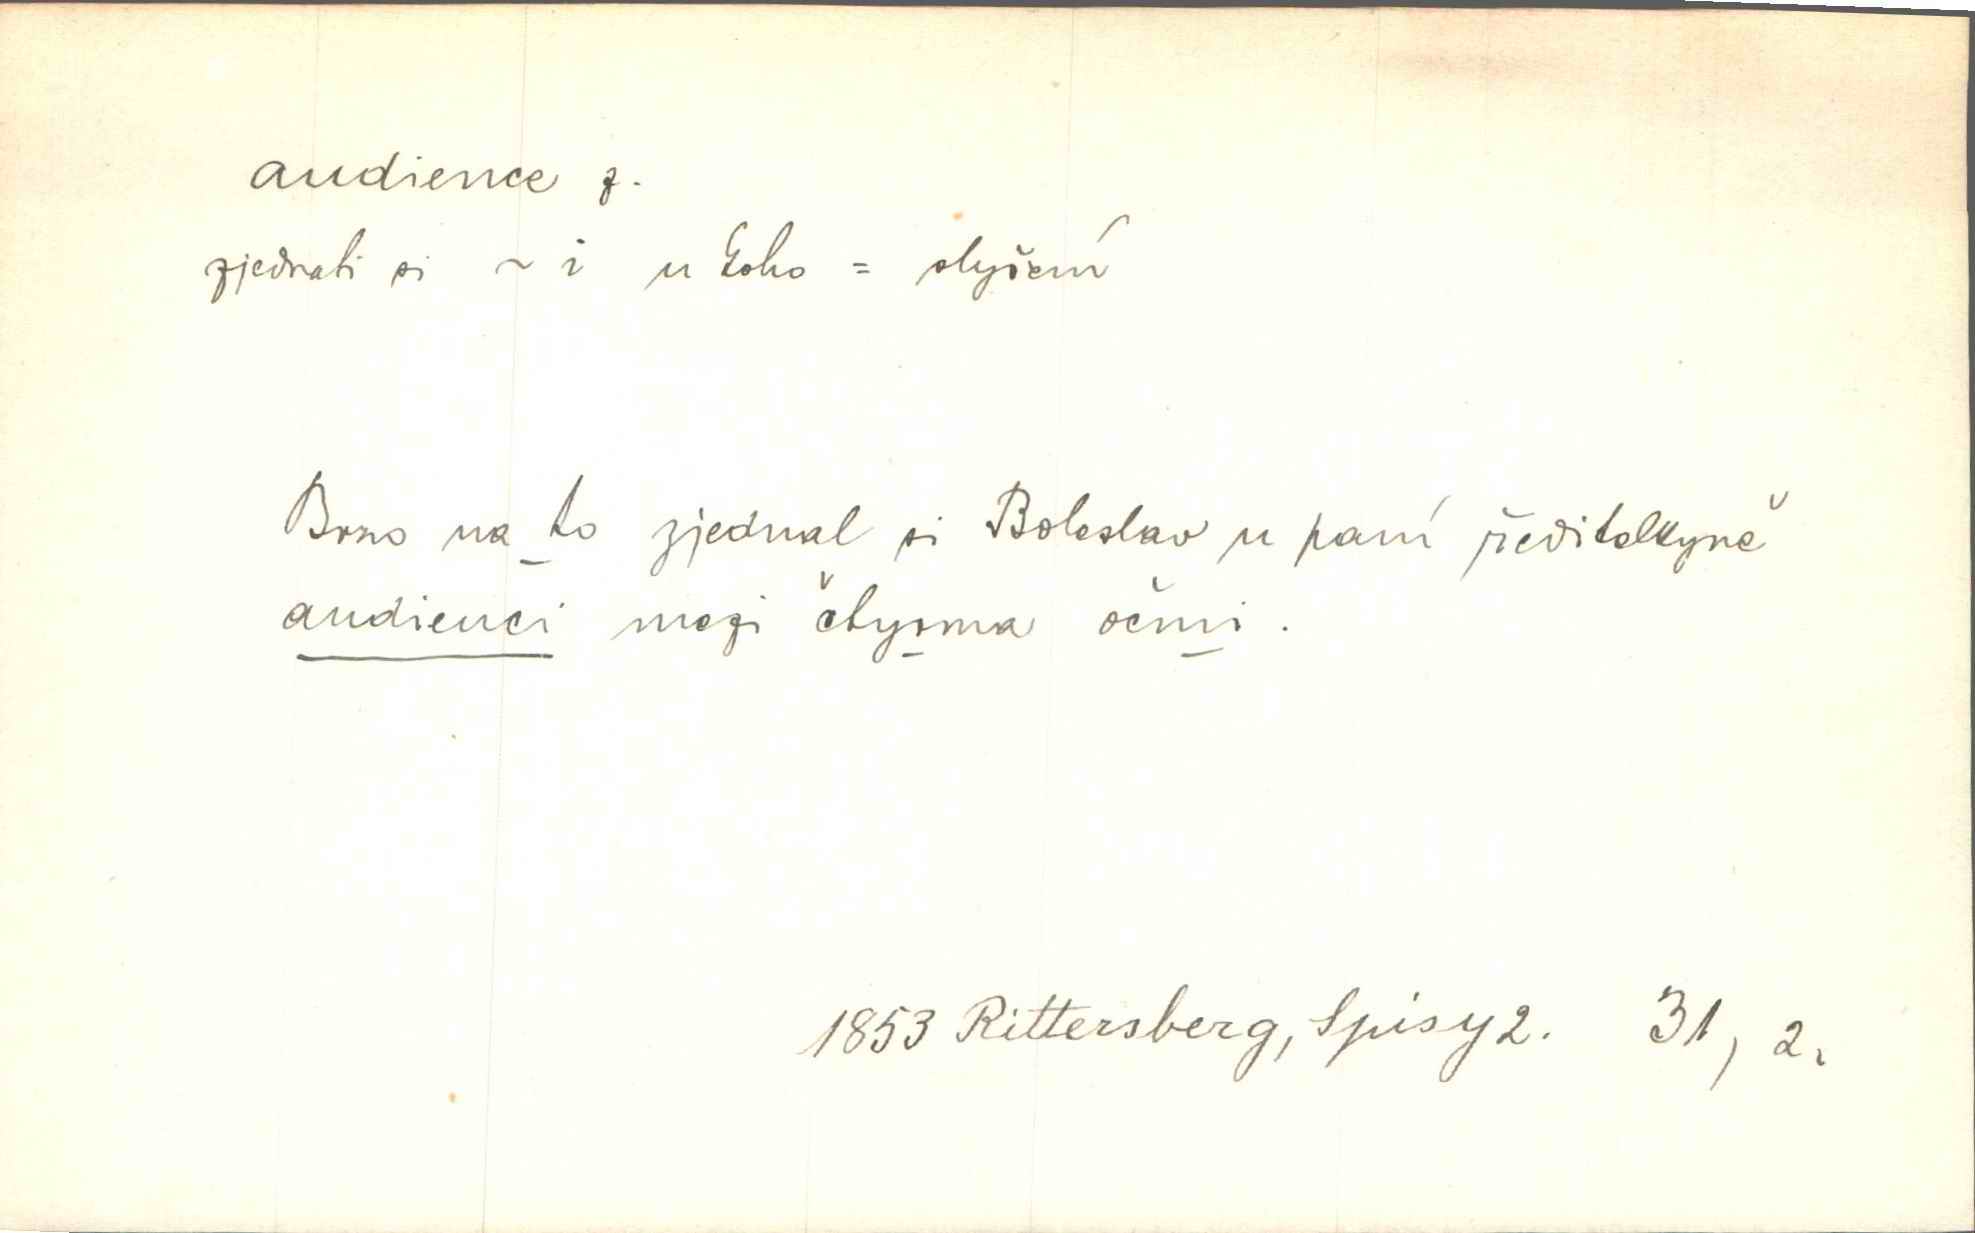 audience ž.
zjednati si ~ i u koho = slyšení
Brzo na to zjednal si Boleslav u paní ředitelkyně
audienci mezi čtyrma očmi.
1853 Rittersberg, Spisy 2. 31, 2.